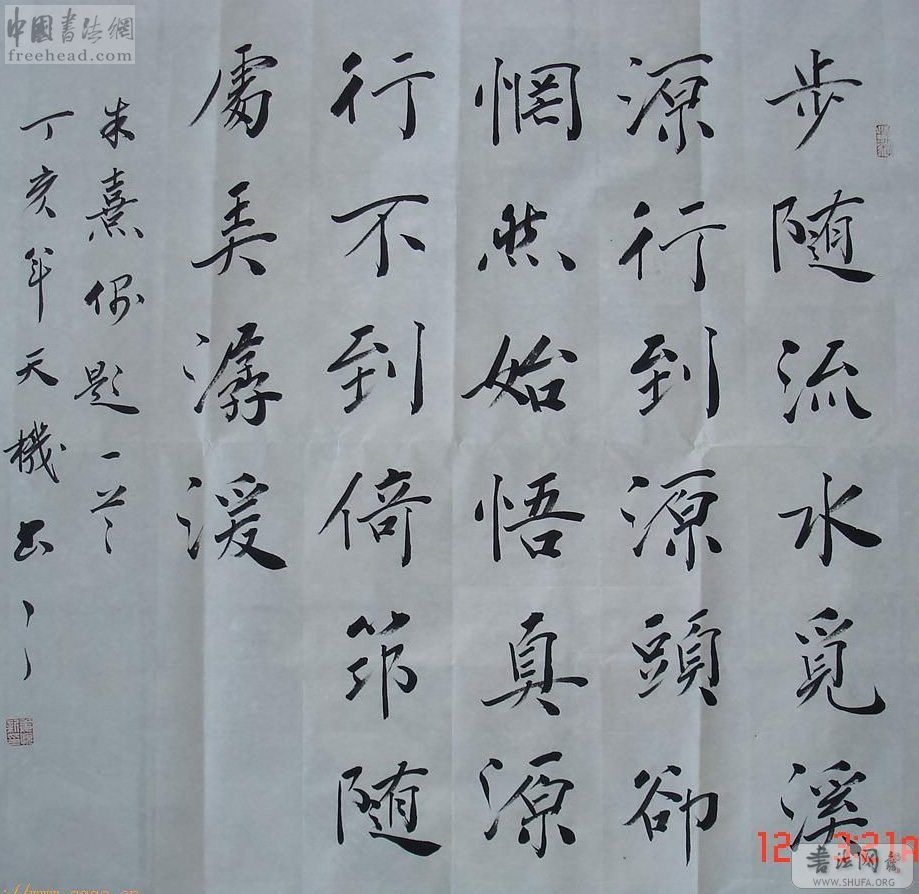 步随流水觅溪
源行到源頭卻
惘然始悟真源
行不到倚筇随
處弄潺湲
朱熹偶题一首
丁亥年天機書
中國書法網
freehead.com
书法网
WWW.SHUFA.ORG